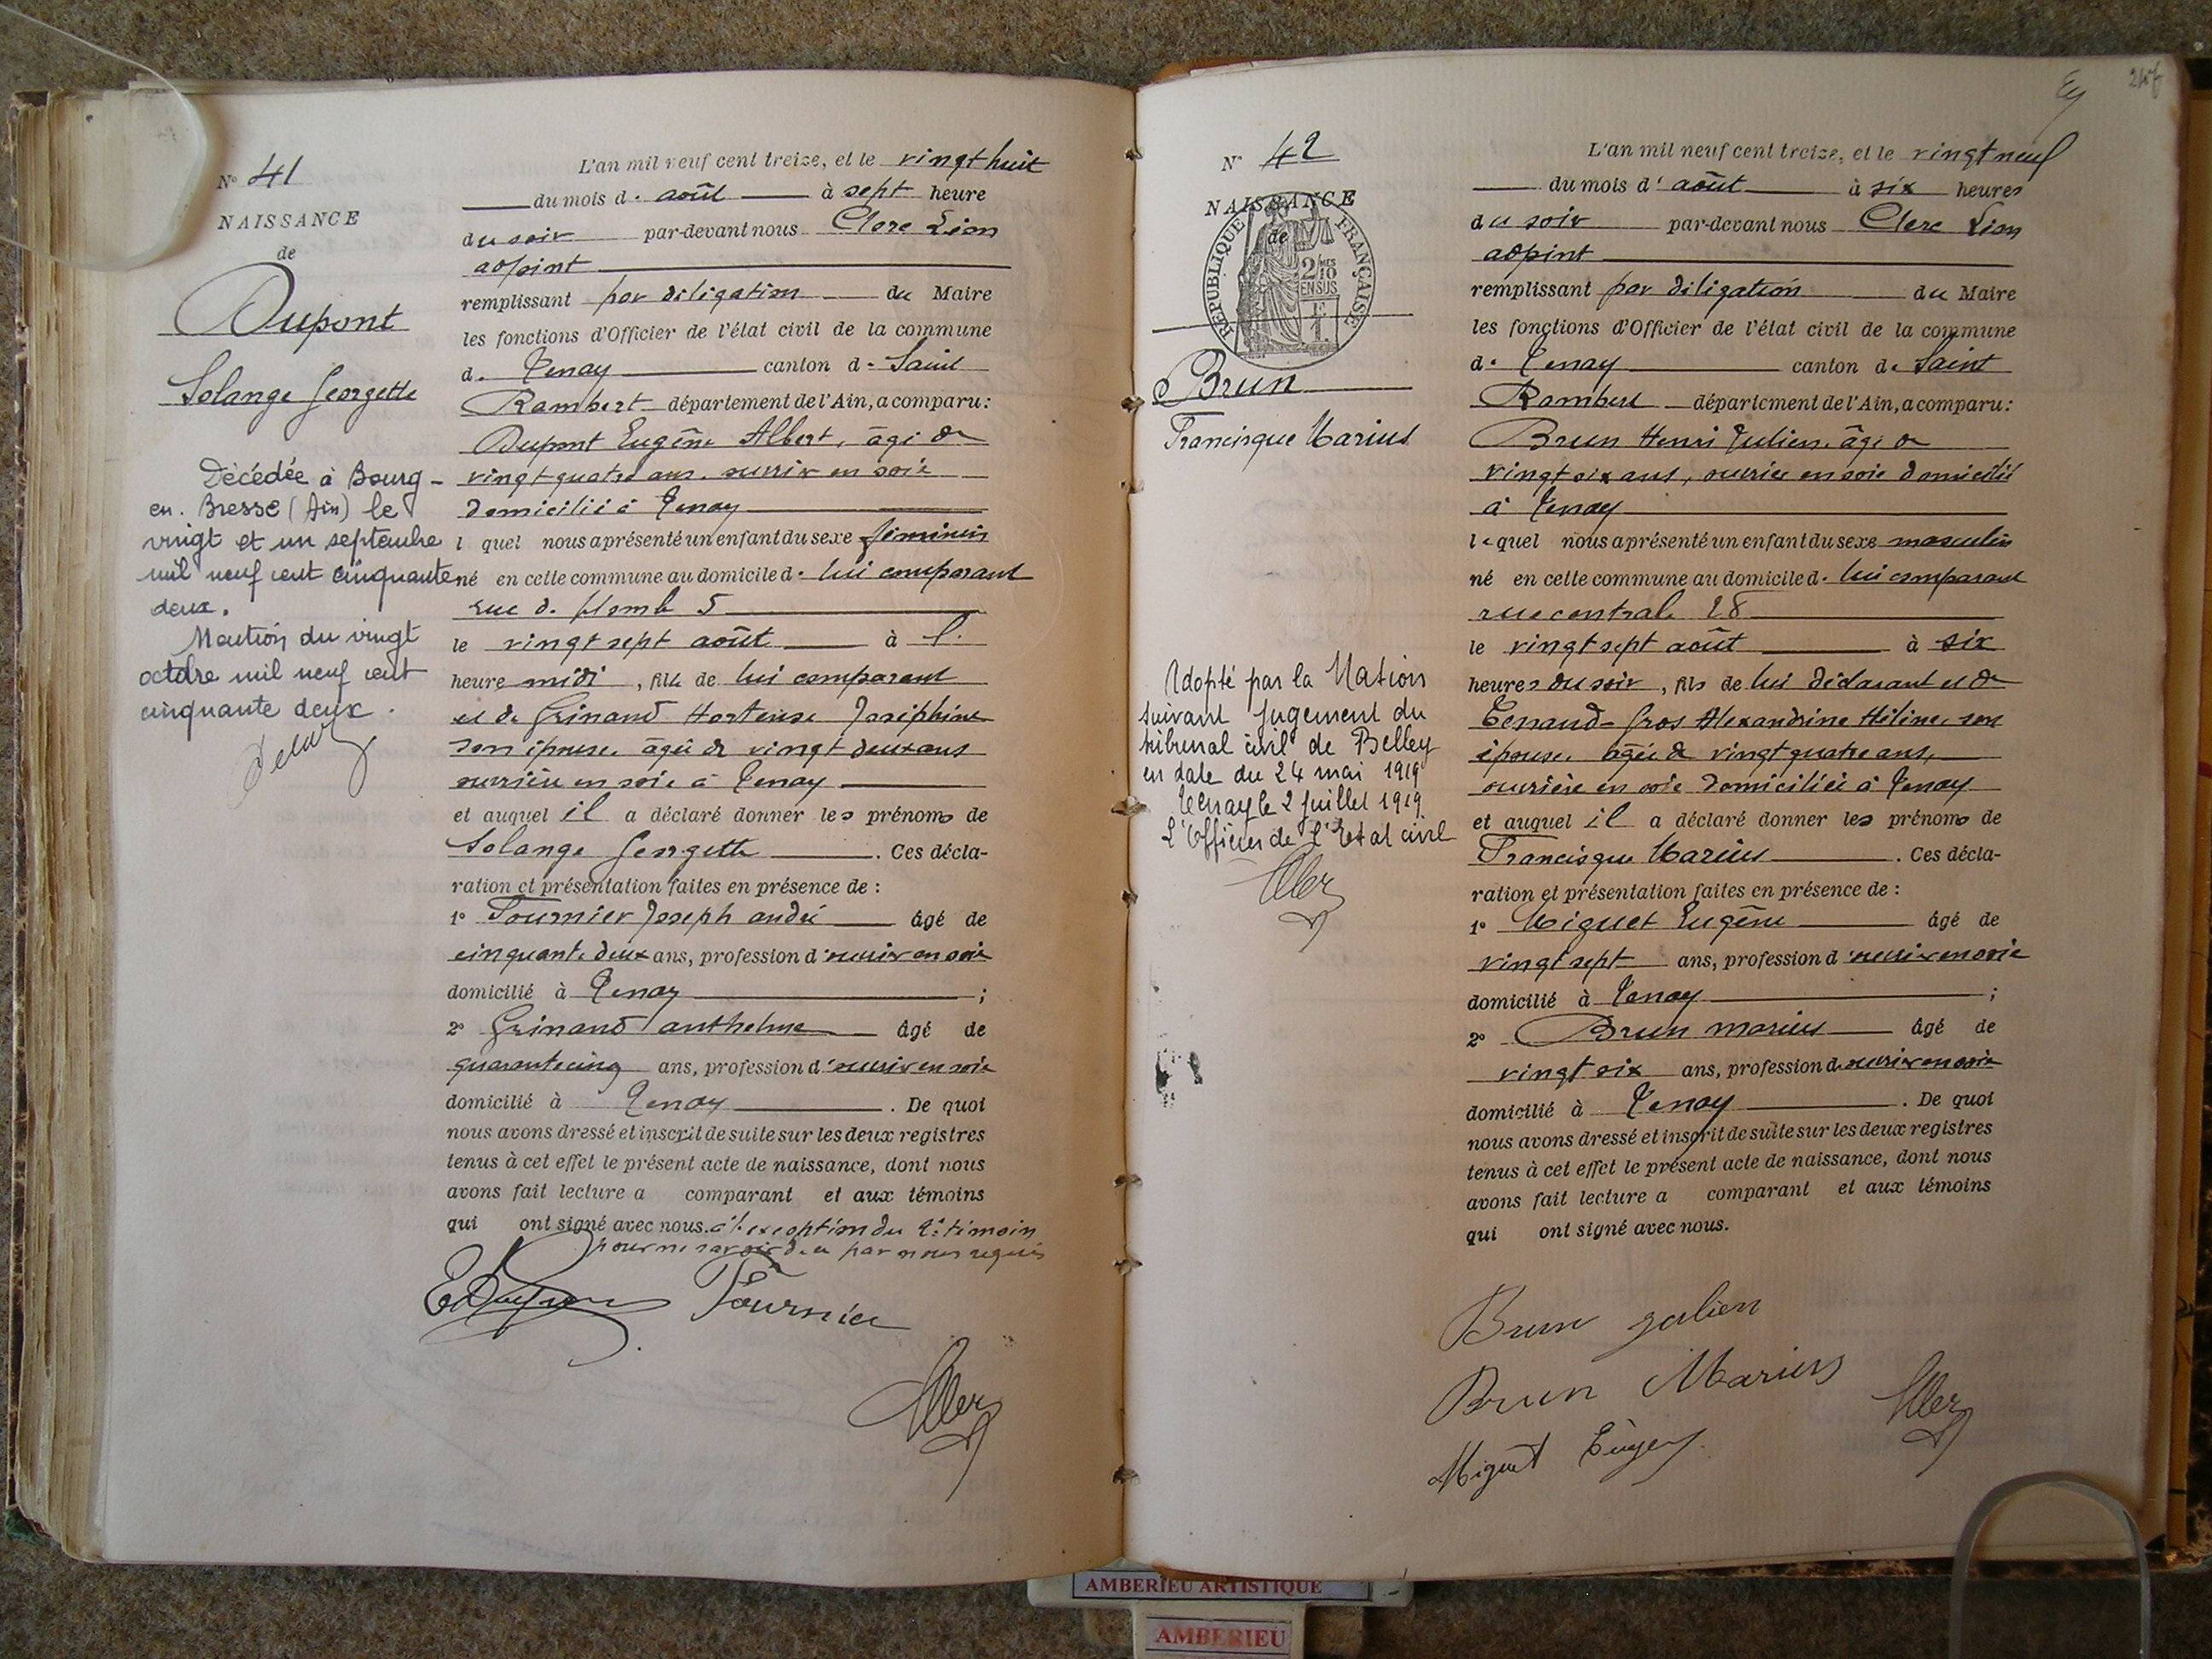 N° 41
NAISSANCE
de
Dupont
Solange Georgette
Décédée à Bourg-
en-Bresse (Ain) le
vingt et un septembre
mil neuf cent cinquante
deux.
Mention du vingt
octobre mil neuf cent
cinquante deux.
L'an mil neuf cent treize, et le vingt huit
du mois d' août à sept heure
du soir par-devant nous Clerc Léon
adjoint
remplissant par délégation du Maire
les fonctions d'Officier de l'état civil de la commune
de Tenay canton de Saint
Rambert département de l'Ain, a comparu :
Dupont Eugène Albert, âgé de
vingt quatre ans, ouvrier en soie
domicilié à Tenay
lequel nous a présenté un enfant du sexe féminin
né en cette commune au domicile de lui comparant
rue de 5
le vingt sept août à
heure midi, fille de lui comparant
et de Grinand Hortense Joséphine
son épouse, âgée de vingt deux ans
ouvrière en soie à Tenay
et auquel il a déclaré donner les prénoms de
Solange Georgette. Ces décla-
ration et présentation faites en présence de :
1° Fournier Joseph André âgé de
cinquante deux ans, profession d'ouvrier en soie
domicilié à Tenay ;
2° Grinand Anthelme âgé de
quarante cinq ans, profession d'ouvrier en soie
domicilié à Tenay. De quoi
nous avons dressé et inscrit de suite sur les deux registres
tenus à cet effet le présent acte de naissance, dont nous
avons fait lecture a comparant et aux témoins
qui ont signé avec nous. à l'exception du 2e témoin
pour ne savoir de ce par nous requis
E Dupont Fournier
N° 42
NAISSANCE
de
RÉPUBLIQUE FRANÇAISE
2/10MES
EN SUS
Brun
Francisque Marius
Adopté par la Nation
suivant jugement du
tribunal civil de Belley
en date du 24 mai 1919
Tenay le 2 juillet 1919
L'Officier de l'Etat civil
L'an mil neuf cent treize, et le vingt neuf
du mois d' août à six heures
du soir par-devant nous Clerc Léon
adjoint
remplissant par délégation du Maire
les fonctions d'Officier de l'état civil de la commune
de Tenay canton de Saint
Rambert département de l'Ain, a comparu :
Brun Henri Julien, âgé de
vingt six ans, ouvrier en soie domicilié
à Tenay
lequel nous a présenté un enfant du sexe masculin
né en cette commune au domicile de lui comparant
rue centrale 28
le vingt sept août à six
heures du soir, fils de lui déclarant et de
Tenand-Gros Alexandrine Hélène, son
épouse, âgée de vingt quatre ans,
ouvrière en soie domiciliée à Tenay
et auquel il a déclaré donner les prénoms de
Francisque Marius. Ces décla-
ration et présentation faites en présence de :
1° Miguet Eugène âgé de
vingt sept ans, profession d'ouvrier en soie
domicilié à Tenay ;
2° Brun Marius âgé de
vingt six ans, profession d'ouvrier en soie
domicilié à Tenay. De quoi
nous avons dressé et inscrit de suite sur les deux registres
tenus à cet effet le présent acte de naissance, dont nous
avons fait lecture a comparant et aux témoins
qui ont signé avec nous.
Brun Julien
Brun Marius
Miguet Eugène
AMBERIEU ARTISTIQUE
AMBERIEU